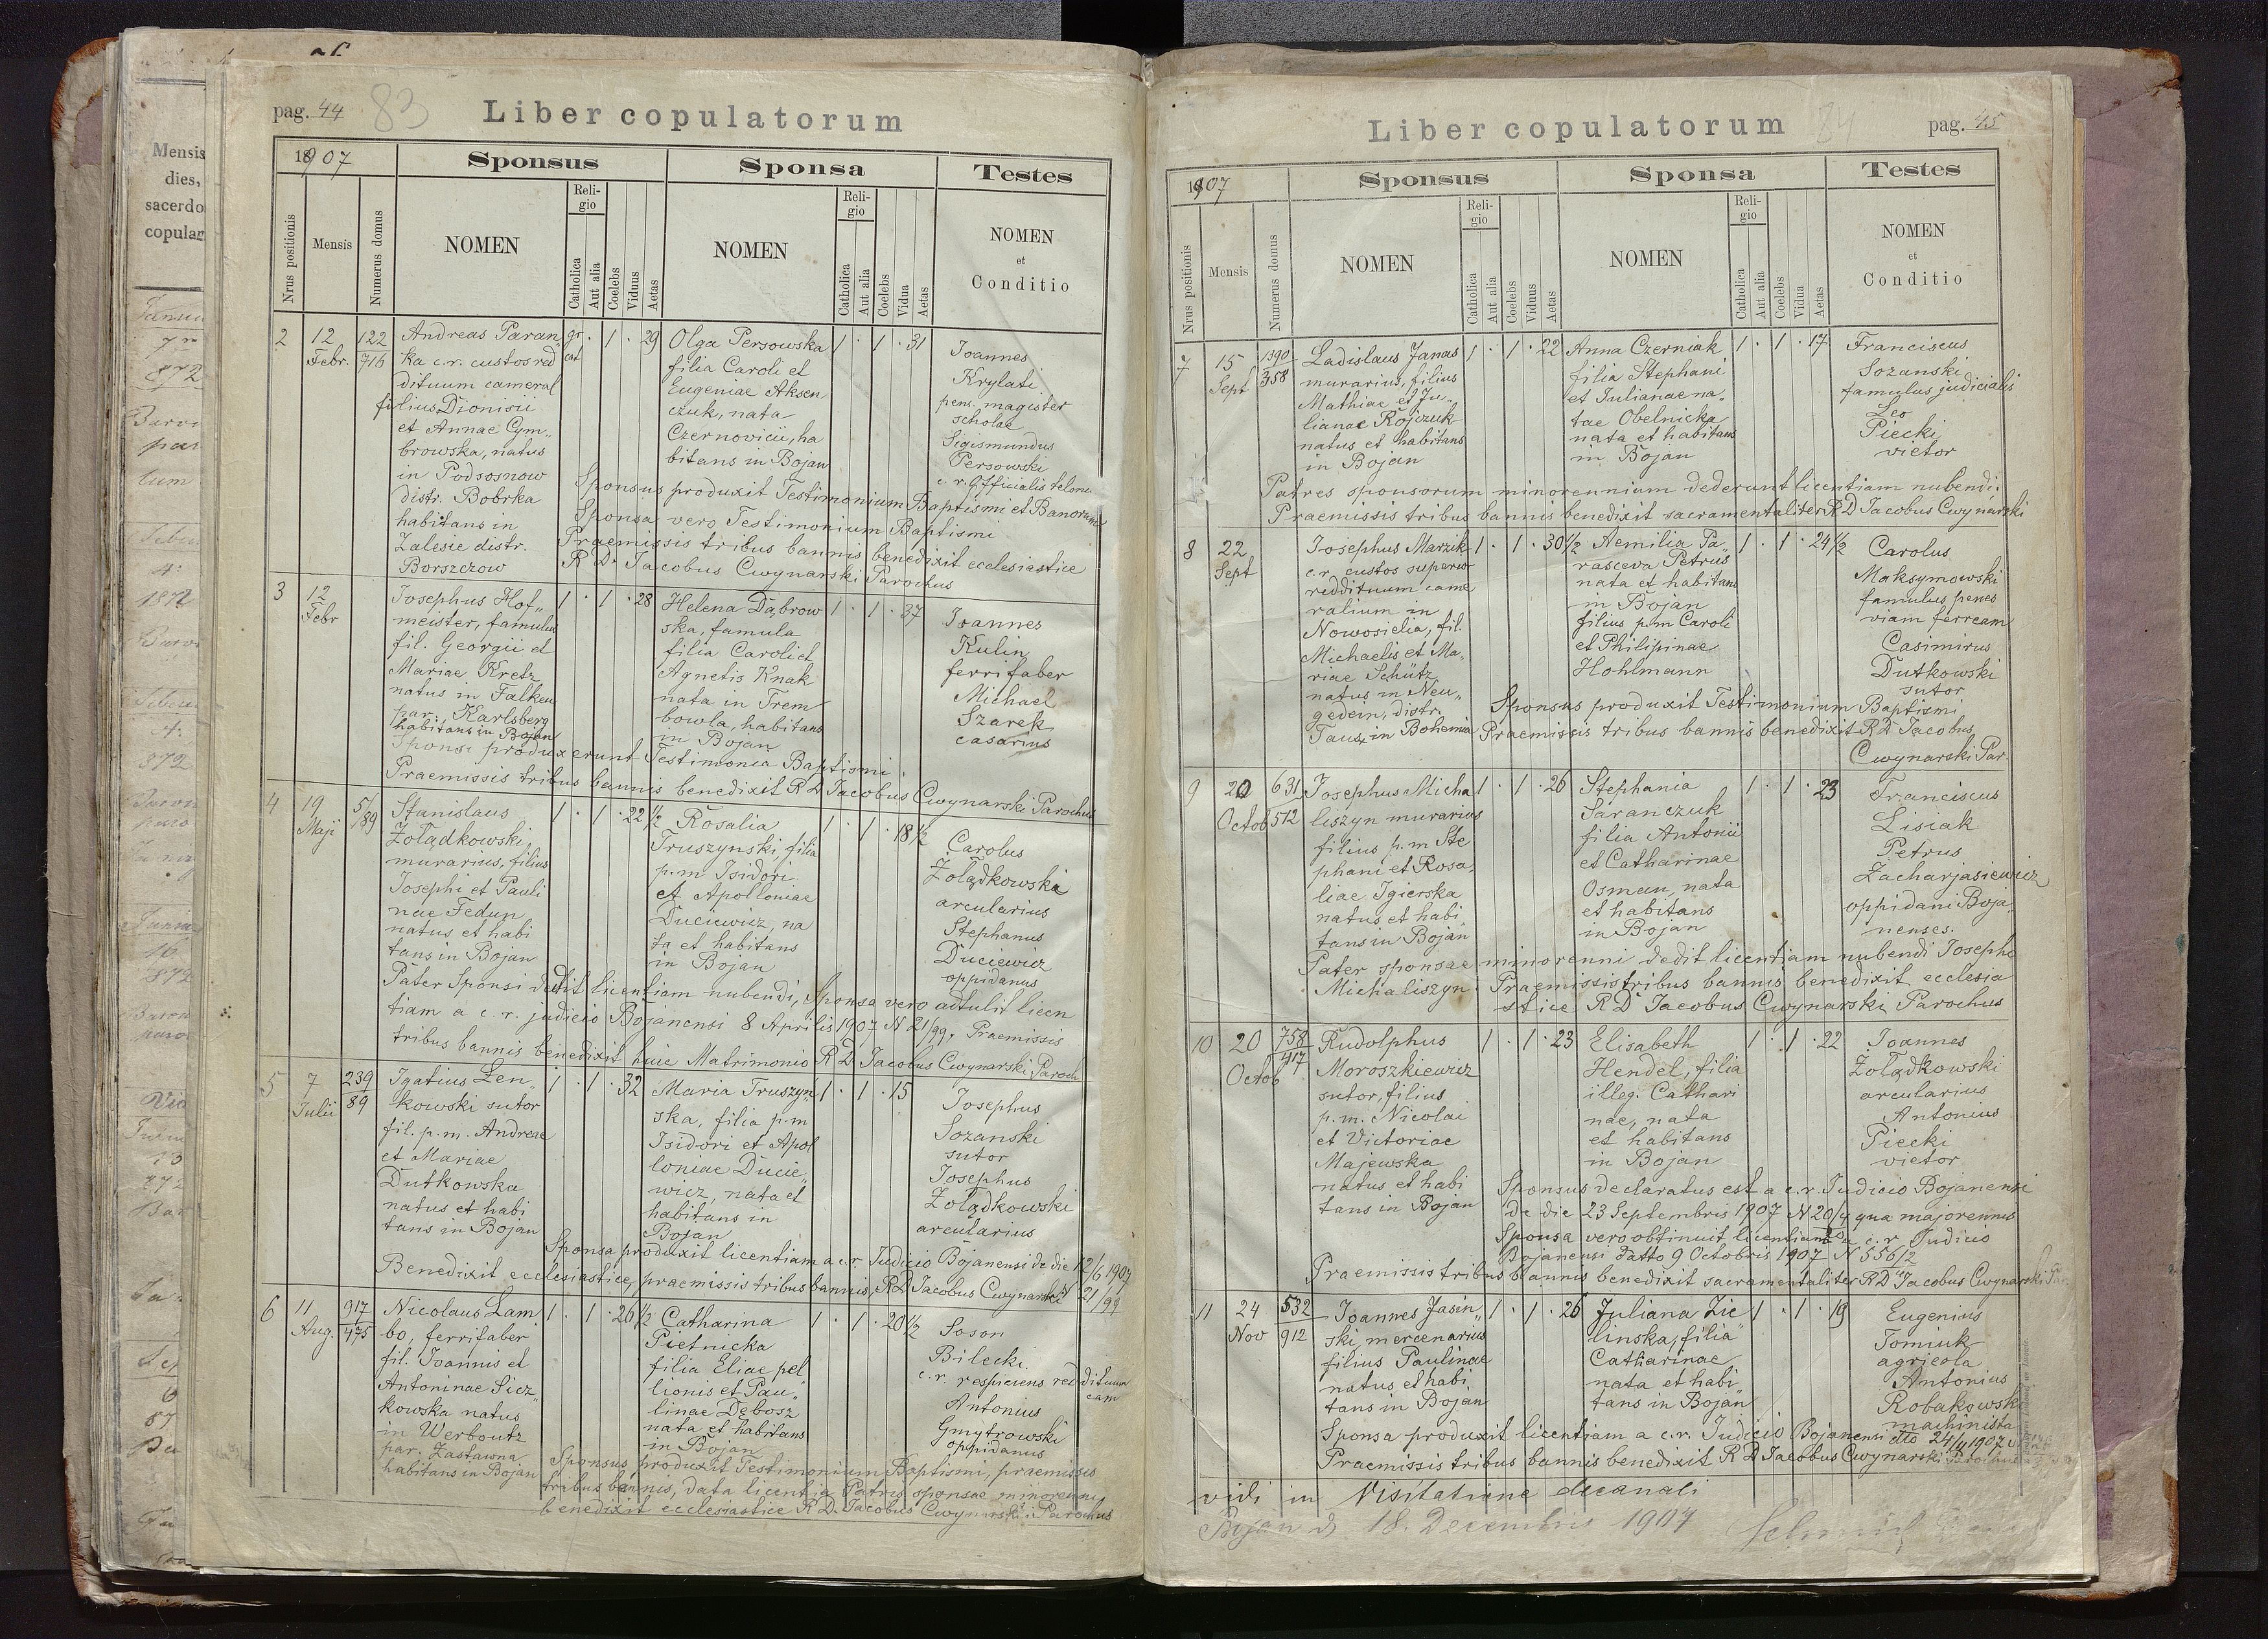 pag. 44 83 Liber copulatorum
1907 Sponsus Sponsa Testes
Nrus positionis Mensis Numerus domus NOMEN Religio Catholica Aut alia Coelebs Viduus Aetas NOMEN Religio Catholica Aut alia Coelebs Vidua Aetas NOMEN et Conditio
2 12 Febr. 122 716
Andreas Paran„
ka c.r. custos red
dituum cameral
filius Dionisii
et Annae Gym„
browska, natus
in Podsosnow
distr. Bobrka
habitans in
Zalesie distr.
Borszczow
gr. cat . 1 . 29
Olga Persowska
filia Caroli et
Eugeniae Aksen
czuk, nata
Czernovicii, ha
bitans in Bojan
1 . 1 . 31
Joannes
Krylati
pens. magister
scholae
Sigismundus
Persowski
c. r. Officialis telonu
Sponsus produxit Testimonium Baptismi et Banorum
Sponsa vero Testimonium Baptismi
Praemissis tribus bannis benedixit ecclesiastice
R. D. Jacobus Cwynarski Parochus
3 12 Febr
Josephus Hof„
meister, famulus
fil. Georgii et
Mariae Kretz
natus in Falken
par. Karlsberg
habitans in Bojan
1 . 1 . 28
Helena Dąbrow
ska, famula
filia Caroli et
Agnetis Knak
nata in Trem
bowla, habitans
in Bojan
1 . 1 . 37
Joannes
Kulin
ferrifaber
Michael
Szarek
casarius
Sponsi produxerunt Testimonia Baptismi
Praemissis tribus bannis benedixit R D Jacobus Cwynarski Parochus
4 19 Maji 5/89
Stanislaus
Żołądkowski,
murarius, filius
Josephi et Pauli
nae Fedun
natus et habi
tans in Bojan
1 . 1 . 22 1/2
Rosalia
Truszynski, filia
p.m Isidori
et Apolloniae
Duciewicz, na
ta et habitans
in Bojan
1 . 1 . 18 1/2
Carolus
Żołądkowski
arcularius
Stephanus
Duciewicz
oppidanus
Pater Sponsi dedit licentiam nubendi, Sponsa vero adtulit licen
tiam a c. r. judicio Bojanensi 8 Aprilis 1907 N 21/99. Praemissis
tribus bannis benedixit huic Matrimonio R D Jacobus Cwynarski Paroch
5 7 Julii 239 89
Igatius Zen„
kowski sutor
fil. p. m. Andreae
et Mariae
Dutkowska
natus et habi
tans in Bojan
1 . 1 . 32
Maria Truszyń
ska, filia p.m
Isidori et Apol
loniae Ducie„
wicz, nata et
habitans in
Bojan
1 . 1 . 15
Josephus
Sozanski
sutor
Josephus
Żołądkowski
arcularius
Sponsa produxit licentiam a c.r. Judicio Bojanensi de die 12/6 1907
Benedixit ecclesiastice, praemissis tribus bannis, R D Jacobus Cwynarski N 21/99
6 11 Aug. 917 475
Nicolaus Lam
bo, ferrifaber
fil. Joannis et
Antoninae Sicz
kowska natus
in Werboutz
par. Zastawna
habitans in Bojan
1 . 1 . 26 1/2
Catharina
Pietnicka
filia Eliae pel
lionis et Pau„
linae Debosz
nata et habitans
in Bojan
1 . 1 . 20 1/2
Soson
Bilecki
c. r. respiciens reddituum
cam
Antonius
Gmytrowski
oppidanus
Sponsus produxit Testimonium Baptismi, praemissis
tribus bannis, data licentia Patris sponsae minorenni
benedixit ecclesiastice R. D. Jacobus Cwynarski Parochus
Liber copulatorum 84 pag. 45
1907 Sponsus Sponsa Testes
Nrus positionis Mensis Numerus domus NOMEN Religio Catholica Aut alia Coelebs Viduus Aetas NOMEN Religio Catholica Aut alia Coelebs Vidua Aetas NOMEN et Conditio
7 15 Sept 1390 358
Ladislaus Janas
murarius, filius
Mathiae et Ju„
lianae Rojczuk
natus et habitans
in Bojan
1 . 1 . 22
Anna Czerniak
filia Stephani
et Julianae na„
tae Obelnicka
nata et habitans
in Bojan
1 . 1 . 17
Franciscus
Sozanski
famulus judicialis
Leo
Piecki
vietor
Patres sponsorum minorennium dederunt licentiam nubendi.
Praemissis tribus bannis benedixit sacramentaliter R D Jacobus Cwynarski
8 22 Sept
Josephus Marzik
c.r. custos superior
reddituum came
ralium in
Nowosielia, fil.
Michaelis et Ma„
riae Schütz
natus in Neu„
gedein, distr.
Taus, in Bohemia
1 . 1 . 30 1/2
Aemilia Pa„
rasceva Petrus
nata et habitans
in Bojan
filius p.m Caroli
et Philipinae
Hohlmann
1 . 1 . 24 1/2
Carolus
Maksymowski
famulus penes
viam ferream
Casimirus
Dutkowski
sutor
Sponsus produxit Testimonium Baptismi
Praemissis tribus bannis benedixit R D Jacobus
Cwynarski Par.
9 20 Octob 631 512
Josephus Micha
liszyn murarius
filius p. m Ste
phani et Rosa„
liae Igierska
natus et habi
tans in Bojan
1 . 1 . 26
Stephania
Saranczuk
filia Antonii
et Catharinae
Osman, nata
et habitans
in Bojan
1 . 1 . 23
Franciscus
Lisiak
Petrus
Zacharjasiewicz
oppidani Boja„
nenses.
Pater sponsae minorenni dedit licentiam nubendi Josepho
Michaliszyn. Praemissis tribus bannis benedixit ecclesia
stice R D Jacobus Cwynarski Parochus
10 20 Octob 758 417
Rudolphus
Moroszkiewicz
sutor, filius
p. m. Nicolai
et Victoriae
Majewska
natus et habi
tans in Bojan
1 . 1 . 23
Elisabeth
Hendel, filia
illeg. Cathari
nae, nata
et habitans
in Bojan
1 . 1 . 22
Joannes
Żołądkowski
arcularius
Antonius
Piecki
vietor
Sponsus declaratus est a c.r. Judicio Bojanensi
de die 23 Septembris 1907 N 20/4 qua majorennis
Sponsa vero obtinuit licentiam a c. r Judicio
Bojanensi datto 9 Octobris 1907 N 556/2
Praemissis tribus bannis benedixit sacramentaliter R D Jacobus Cwynarski Par.
11 24 Nov 532 912
Joannes Jasin„
ski, mercenarius
filius Paulinae
natus et habi
tans in Bojan
1 . 1 . 26
Juliana Zie
linska, filia
Catharinae
nata et habi
tans in Bojan
1 . 1 . 19
Eugenius
Tomiuk
agricola
Antonius
Robakowski
machinista
Sponsa produxit licentiam a c.r. Judicio Bojanensi dto 24/11 1907
Praemissis tribus bannis benedixit R D Jacobus Cwynarski Parochus
vidi in Visitatione decanali
Bojan d 18. Decembris 1907
Mensis
dies,
sacerdo
copular